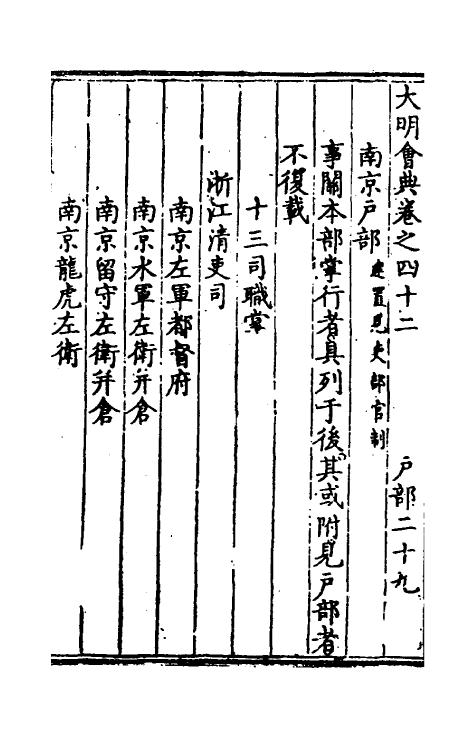 大明會典卷之四十二　戶部二十九
南京戶部 建置見吏部官制
事關本部掌行者具列于後其或附見戶部者
不復載
十三司職掌
浙江清吏司
南京左軍都督府
南京水軍左衛并倉
南京留守左衛并倉
南京龍虎左衛